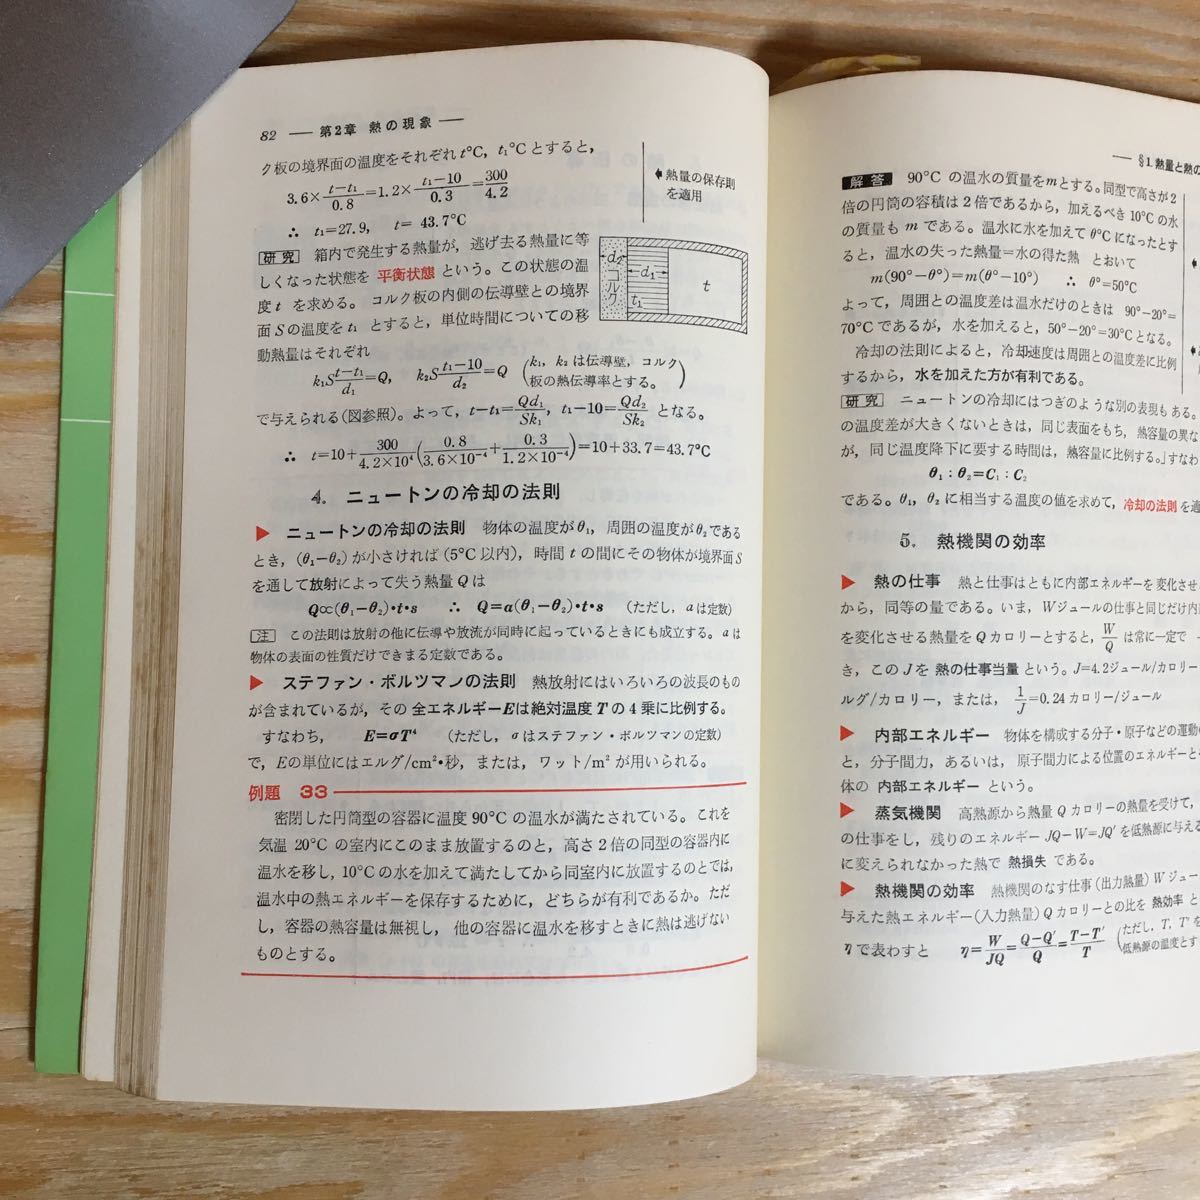 82 ── 第2章 熱の現象 ──
ク板の境界面の温度をそれぞれt°C, t₁°Cとすると,
3.6×(t−t₁)/0.8=1.2×(t₁−10)/0.3=300/4.2
∴ t₁=27.9, t= 43.7°C
熱量の保存則
を適用
研究 箱内で発生する熱量が, 逃げ去る熱量に等
しくなった状態を 平衡状態 という。この状態の温
度 t を求める。コルク板の内側の伝導壁との境界
面 S の温度を t₁ とすると, 単位時間についての移
動熱量はそれぞれ
d₂
コルク
d₁
t₁
t
k₁S(t−t₁)/d₁=Q, k₂S(t₁−10)/d₂=Q (k₁, k₂ は伝導壁, コルク
板の熱伝導率とする。)
で与えられる(図参照)。よって, t−t₁=Qd₁/Sk₁, t₁−10=Qd₂/Sk₂ となる。
∴ t=10+300/(4.2×10⁴)(0.8/(3.6×10⁻⁴)+0.3/(1.2×10⁻⁴))=10+33.7=43.7°C
4. ニュートンの冷却の法則
▶ ニュートンの冷却の法則 物体の温度がθ₁, 周囲の温度がθ₂である
とき, (θ₁−θ₂)が小さければ(5°C以内), 時間 t の間にその物体が境界面S
を通して放射によって失う熱量 Q は
Q∝(θ₁−θ₂)・t・s ∴ Q=a(θ₁−θ₂)・t・s (ただし, aは定数)
注 この法則は放射の他に伝導や放流が同時に起っているときにも成立する。aは
物体の表面の性質だけできまる定数である。
▶ ステファン・ボルツマンの法則 熱放射にはいろいろの波長のもの
が含まれているが, その 全エネルギーEは絶対温度 T の 4 乗に比例する。
すなわち, E=σT⁴ (ただし, σはステファン・ボルツマンの定数)
で, Eの単位にはエルグ/cm²・秒, または, ワット/m² が用いられる。
例題 33
密閉した円筒型の容器に温度 90°C の温水が満たされている。これを
気温 20°C の室内にこのまま放置するのと, 高さ 2 倍の同型の容器内に
温水を移し, 10°C の水を加えて満たしてから同室内に放置するのとでは,
温水中の熱エネルギーを保存するために, どちらが有利であるか。ただ
し, 容器の熱容量は無視し, 他の容器に温水を移すときに熱は逃げない
ものとする。
── §1. 熱量と熱の
解答 90°C の温水の質量をmとする。同型で高さが2
倍の円筒の容積は 2 倍であるから, 加えるべき 10°C の水
の質量も m である。温水に水を加えて θ°C になったとす
ると, 温水の失った熱量＝水の得た熱 とおいて
m(90°−θ°)=m(θ°−10°) ∴ θ°=50°C
よって, 周囲との温度差は温水だけのときは 90°−20°=
70°C であるが, 水を加えると, 50°−20°=30°C となる。
冷却の法則によると, 冷却速度は周囲との温度差に比例
するから, 水を加えた方が有利である。
研究 ニュートンの冷却にはつぎのような別の表現もある。
の温度差が大きくないときは, 同じ表面をもち, 熱容量の異な
が, 同じ温度降下に要する時間は, 熱容量に比例する。」すなわ
θ₁：θ₂=C₁：C₂
である。θ₁, θ₂ に相当する温度の値を求めて, 冷却の法則 を適
5. 熱機関の効率
▶ 熱の仕事 熱と仕事はともに内部エネルギーを変化させ
から, 同等の量である。いま, Wジュールの仕事と同じだけ内
を変化させる熱量を Q カロリーとすると, W/Q は常に一定で
き, この J を 熱の仕事当量 という。J=4.2ジュール/カロリー
ルグ/カロリー, または, 1/J=0.24 カロリー/ジュール
▶ 内部エネルギー 物体を構成する分子・原子などの運動の
と, 分子間力, あるいは, 原子間力による位置のエネルギーと
体の 内部エネルギー という。
▶ 蒸気機関 高熱源から熱量 Q カロリーの熱量を受けて,
の仕事をし, 残りのエネルギー JQ−W=JQ′を低熱源に与える
に変えられなかった熱で 熱損失 である。
▶ 熱機関の効率 熱機関のなす仕事(出力熱量) W ジュー
与えた熱エネルギー(入力熱量) Q カロリーとの比を 熱効率 と
η で表わすと η=W/JQ=(Q−Q′)/Q=(T−T′)/T (ただし, T, T′を
低熱源の温度とす